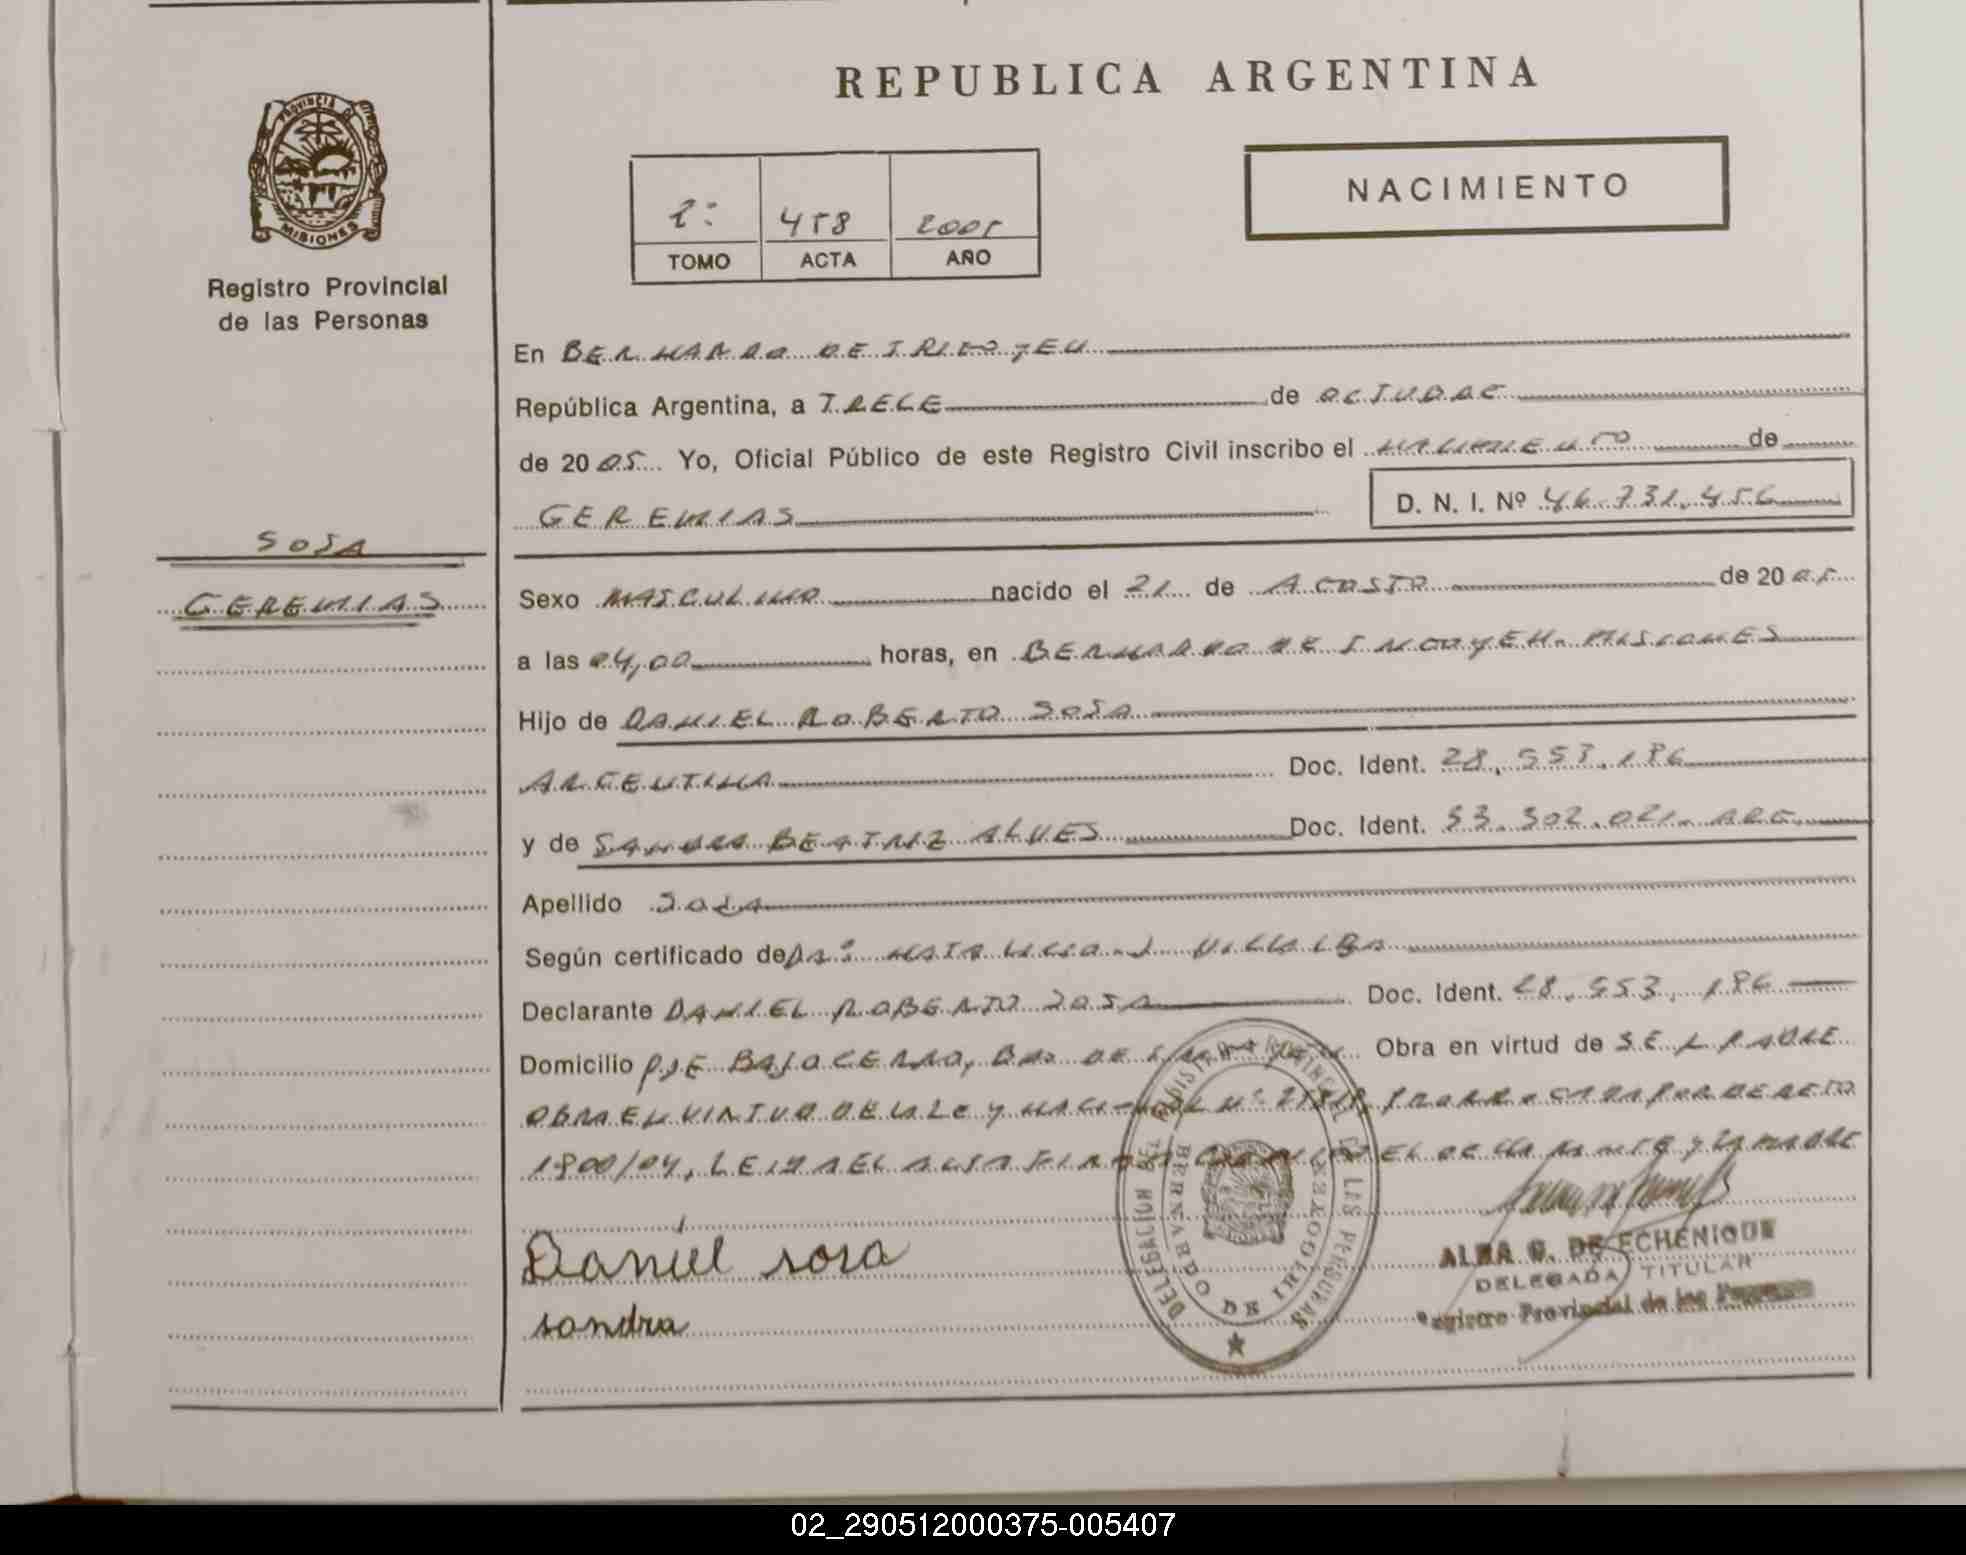 REPUBLICA ARGENTINA
PROVINCIA DE
MISIONES
Registro Provincial
de las Personas
NACIMIENTO
2º 458 2005
TOMO ACTA AÑO
En BERNARDO DE IRIGOYEN
República Argentina, a TRECE de OCTUBRE
de 2005 Yo, Oficial Público de este Registro Civil inscribo el NACIMIENTO de
GEREMIAS D. N. I. Nº 46.731.456
SOSA
GEREMIAS
Sexo MASCULINO nacido el 21 de AGOSTO de 2005
a las 04,00 horas, en BERNARDO DE IRIGOYEN. MISIONES
Hijo de DANIEL ROBERTO SOSA
ARGENTINA Doc. Ident. 28.553.186
y de SANDRA BEATRIZ ALVES Doc. Ident. 33.302.021. ARG.
Apellido SOSA
Según certificado de DR: VILLALBA
Declarante DANIEL ROBERTO SOSA Doc. Ident. 28.553.186
Domicilio PJE BAJO CERRO, BDO DE IRIGOYEN Obra en virtud de SER PADRE
OBRA EN VIRTUD DE LA LEY NACIONAL Nº PRORROGADA POR DECRETO
1900/04, LEIDA EL ACTA FIRMAN CONMIGO EL DECLARANTE Y LA MADRE
Daniel sosa
sandra
DELEGACION REGISTRO PROVINCIAL DE LAS PERSONAS
BERNARDO DE IRIGOYEN
ALBA G. DE ECHENIQUE
DELEGADA TITULAR
Registro Provincial de las Personas
02_290512000375-005407